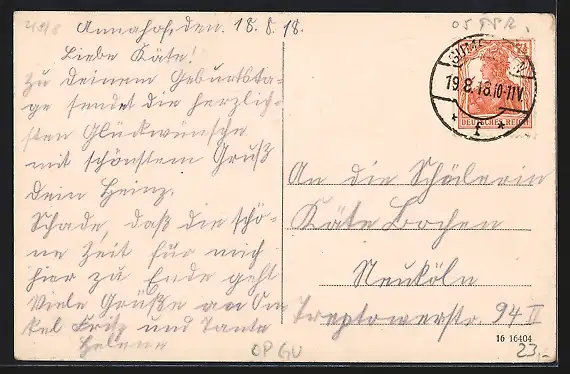 Annahof, den. 18.8.18.
Liebe Käte!
Zu deinem Geburtsta-
ge sendet die herzlich-
sten Glückwünsche
mit schönstem Gruß
dein Heinz.
Schade, daß die schö-
ne Zeit für mich
hier zu Ende geht
Viele Grüße an On
kel Fritz und Tante
Helene
05558R.
19.8.18.10-11V.
* f *
7½
DEUTSCHES REICH
An die Schülerin
Käte Bochen
Neuköln
Treptowerstr. 94 II
16 16404
OP GU
23,-